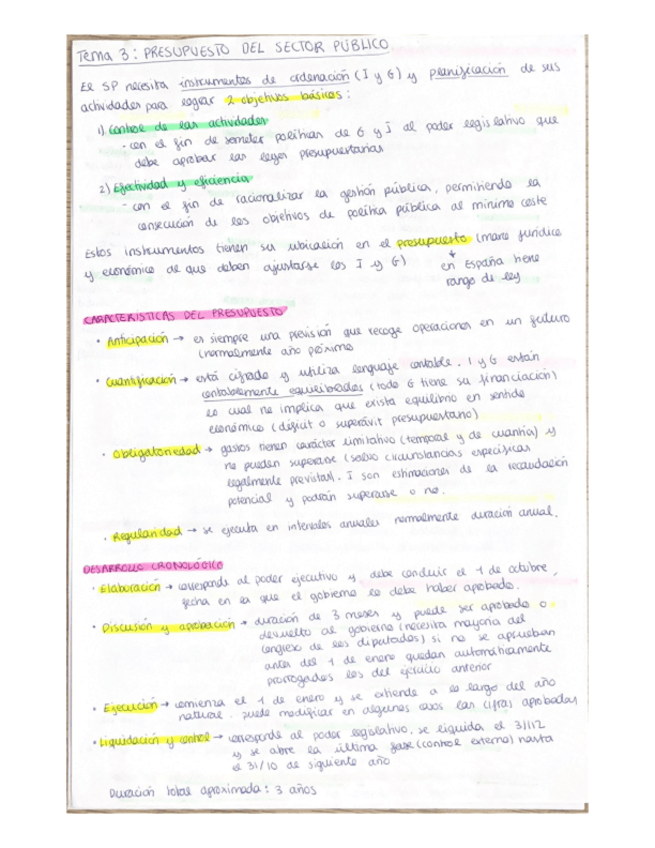 Tema 3: PRESUPUESTO DEL SECTOR PÚBLICO
El SP necesita instrumentos de ordenación (I y G) y planificación de sus
actividades para lograr 2 objetivos básicos:
1) Control de las actividades
· con el fin de someter políticas de G y I al poder legislativo que
debe aprobar las leyes presupuestarias
2) Efectividad y eficiencia
- con el fin de racionalizar la gestión pública, permitiendo la
consecución de los objetivos de política pública al mínimo coste
Estos instrumentos tienen su ubicación en el presupuesto (marco jurídico
y económico de que deben ajustarse los I y G)
↓
en España tiene
rango de ley
CARACTERISTICAS DEL PRESUPUESTO
· Anticipación → es siempre una previsión que recoge operaciones en un futuro
(normalmente año próximo
· Cuantificación → está cifrado y utiliza lenguaje contable. I y G están
contablemente equilibrados (todo G tiene su financiación)
lo cual no implica que exista equilibrio en sentido
económico (déficit o superávit presupuestario)
· Obligatoriedad → gastos tienen carácter limitativo (temporal y de cuantía) y
no pueden superarse (salvo circunstancias específicas
legalmente previstas). I son estimaciones de la recaudación
potencial y podrán superarse o no.
· Regularidad → se ejecuta en intervalos anuales normalmente duración anual.
DESARROLLO CRONOLÓGICO
· Elaboración → corresponde al poder ejecutivo y debe concluir el 1 de octubre,
fecha en la que el gobierno lo debe haber aprobado.
· Discusión y aprobación → duración de 3 meses y puede ser aprobado o
devuelto al gobierno (necesita mayoría del
congreso de los diputados) si no se aprueban
antes del 1 de enero quedan automáticamente
prorrogados los del ejercicio anterior
· Ejecución → comienza el 1 de enero y se extiende a lo largo del año
natural. Puede modificar en algunos casos las cifras aprobadas
· Liquidación y control → corresponde al poder legislativo, se liquida el 31/12
y se abre la última fase (control externo) hasta
el 31/10 de siguiente año
Duración total aproximada: 3 años